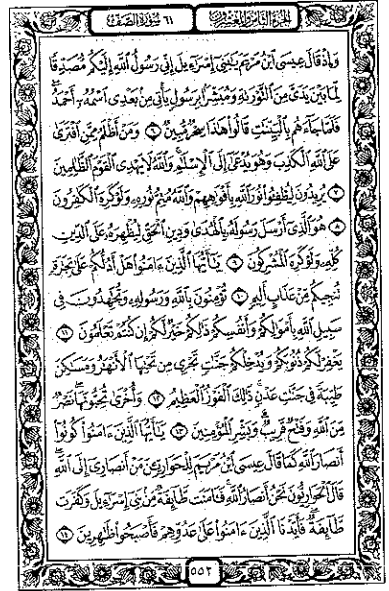 الجزء الثامن والعشرون ٦١ سورة الصف
وَإِذْ قَالَ عِيسَى ٱبْنُ مَرْيَمَ يَٰبَنِىٓ إِسْرَٰٓءِيلَ إِنِّى رَسُولُ ٱللَّهِ إِلَيْكُم مُّصَدِّقًا
لِّمَا بَيْنَ يَدَىَّ مِنَ ٱلتَّوْرَىٰةِ وَمُبَشِّرًۢا بِرَسُولٍ يَأْتِى مِنۢ بَعْدِى ٱسْمُهُۥٓ أَحْمَدُ
فَلَمَّا جَآءَهُم بِٱلْبَيِّنَٰتِ قَالُوا۟ هَٰذَا سِحْرٌ مُّبِينٌ ٦ وَمَنْ أَظْلَمُ مِمَّنِ ٱفْتَرَىٰ
عَلَى ٱللَّهِ ٱلْكَذِبَ وَهُوَ يُدْعَىٰٓ إِلَى ٱلْإِسْلَٰمِ وَٱللَّهُ لَا يَهْدِى ٱلْقَوْمَ ٱلظَّٰلِمِينَ
٧ يُرِيدُونَ لِيُطْفِـُٔوا۟ نُورَ ٱللَّهِ بِأَفْوَٰهِهِمْ وَٱللَّهُ مُتِمُّ نُورِهِۦ وَلَوْ كَرِهَ ٱلْكَٰفِرُونَ
٨ هُوَ ٱلَّذِىٓ أَرْسَلَ رَسُولَهُۥ بِٱلْهُدَىٰ وَدِينِ ٱلْحَقِّ لِيُظْهِرَهُۥ عَلَى ٱلدِّينِ
كُلِّهِۦ وَلَوْ كَرِهَ ٱلْمُشْرِكُونَ ٩ يَٰٓأَيُّهَا ٱلَّذِينَ ءَامَنُوا۟ هَلْ أَدُلُّكُمْ عَلَىٰ تِجَٰرَةٍ
تُنجِيكُم مِّنْ عَذَابٍ أَلِيمٍ ١٠ تُؤْمِنُونَ بِٱللَّهِ وَرَسُولِهِۦ وَتُجَٰهِدُونَ فِى
سَبِيلِ ٱللَّهِ بِأَمْوَٰلِكُمْ وَأَنفُسِكُمْ ذَٰلِكُمْ خَيْرٌ لَّكُمْ إِن كُنتُمْ تَعْلَمُونَ ١١
يَغْفِرْ لَكُمْ ذُنُوبَكُمْ وَيُدْخِلْكُمْ جَنَّٰتٍ تَجْرِى مِن تَحْتِهَا ٱلْأَنْهَٰرُ وَمَسَٰكِنَ
طَيِّبَةً فِى جَنَّٰتِ عَدْنٍ ذَٰلِكَ ٱلْفَوْزُ ٱلْعَظِيمُ ١٢ وَأُخْرَىٰ تُحِبُّونَهَا نَصْرٌ
مِّنَ ٱللَّهِ وَفَتْحٌ قَرِيبٌ وَبَشِّرِ ٱلْمُؤْمِنِينَ ١٣ يَٰٓأَيُّهَا ٱلَّذِينَ ءَامَنُوا۟ كُونُوٓا۟
أَنصَارَ ٱللَّهِ كَمَا قَالَ عِيسَى ٱبْنُ مَرْيَمَ لِلْحَوَارِيِّـۧنَ مَنْ أَنصَارِىٓ إِلَى ٱللَّهِ
قَالَ ٱلْحَوَارِيُّونَ نَحْنُ أَنصَارُ ٱللَّهِ فَـَٔامَنَت طَّآئِفَةٌ مِّنۢ بَنِىٓ إِسْرَٰٓءِيلَ وَكَفَرَت
طَّآئِفَةٌ فَأَيَّدْنَا ٱلَّذِينَ ءَامَنُوا۟ عَلَىٰ عَدُوِّهِمْ فَأَصْبَحُوا۟ ظَٰهِرِينَ ١٤
٥٥٢